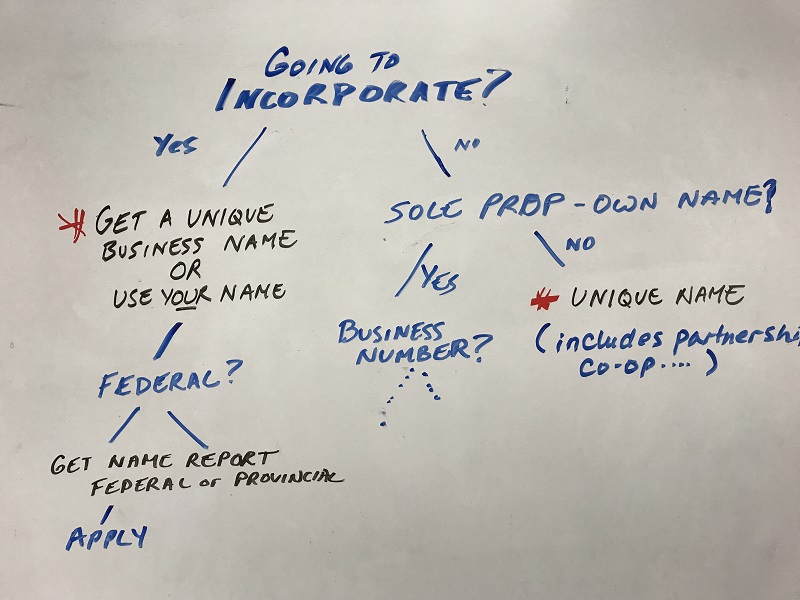 GOING TO
INCORPORATE?
Yes
NO
* GET A UNIQUE
BUSINESS NAME
OR
USE YOUR NAME
SOLE PROP-OWN NAME?
YES
NO
* UNIQUE NAME
(includes partnershi
CO-OP....)
BUSINESS
NUMBER?
FEDERAL?
GET NAME REPORT
FEDERAL or PROVINCIAL
APPLY